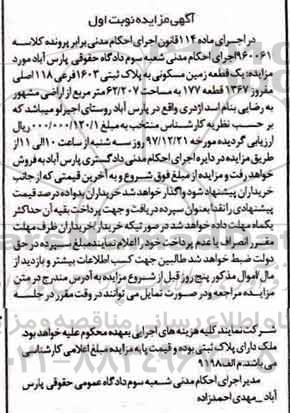 آگهی مزایده نوبت اول
در اجرای ماده ۱۱۴ قانون اجرای احکام مدنی برابر پرونده کلاسه
۹۶۰۰۶۱ اجرای احکام مدنی شعبه سوم دادگاه حقوقی پارس آباد مورد
مزایده: یک قطعه زمین مسکونی به پلاک ثبتی ۱۶۰۳ فرعی ۱۱۸ اصلی
مفروز ۱۳۶۷ قطعه ۱۷۷ به مساحت ۶۲/۲۰۷ متر مربع از اراضی مشهور
به رضایی بنام اسد اژدری واقع در پارس آباد روستای اجیرلو میباشد که
بر حسب نظریه کارشناس منتخب به مبلغ ۰۰۰/۰۰۰/۱۲۰/۱ ریال
ارزیابی گردیده مورخه ۹۷/۱۲/۲۱ روز سه شنبه از ساعت ۱۰ الی ۱۱ از
طریق مزایده در دایره اجرای احکام مدنی دادگستری پارس آباد به فروش
خواهد رفت و مزایده از مبلغ فوق شروع و به آخرین قیمتی که از جانب
خریداران پیشنهاد شود واگذار خواهد شد خریداران بدواده درصد قیمت
پیشنهادی را نقدا بعنوان سپرده دریافت و جهت پرداخت بقیه آن حداکثر
یکماه مهلت داده خواهد شد در صورتیکه خریدار/خریداران ظرف مهلت
مقرر انصراف یا عدم پرداخت خود را اعلام نمایند مبلغ سپرده در حق
دولت ضبط خواهد شد طالبین جهت کسب اطلاعات بیشتر و بازدید از
مال/اموال مذکور پنج روز قبل از شروع مزایده به آدرس مندرج در متن
مزایده مراجعه ودر صورت تمایل می توانند در وقت مقرر در جلسه
شرکت نمایند کلیه هزینه های اجرایی بعهده محکوم علیه خواهد بود.
ملک دارای پلاک ثبتی بوده و قیمت پایه مزایده مبلغ اعلامی کارشناسی
می باشد. م الف ۹۱۱۸
مدیر اجرای احکام مدنی شعبه سوم دادگاه عمومی حقوقی پارس
آباد _ مهدی احمدزاده